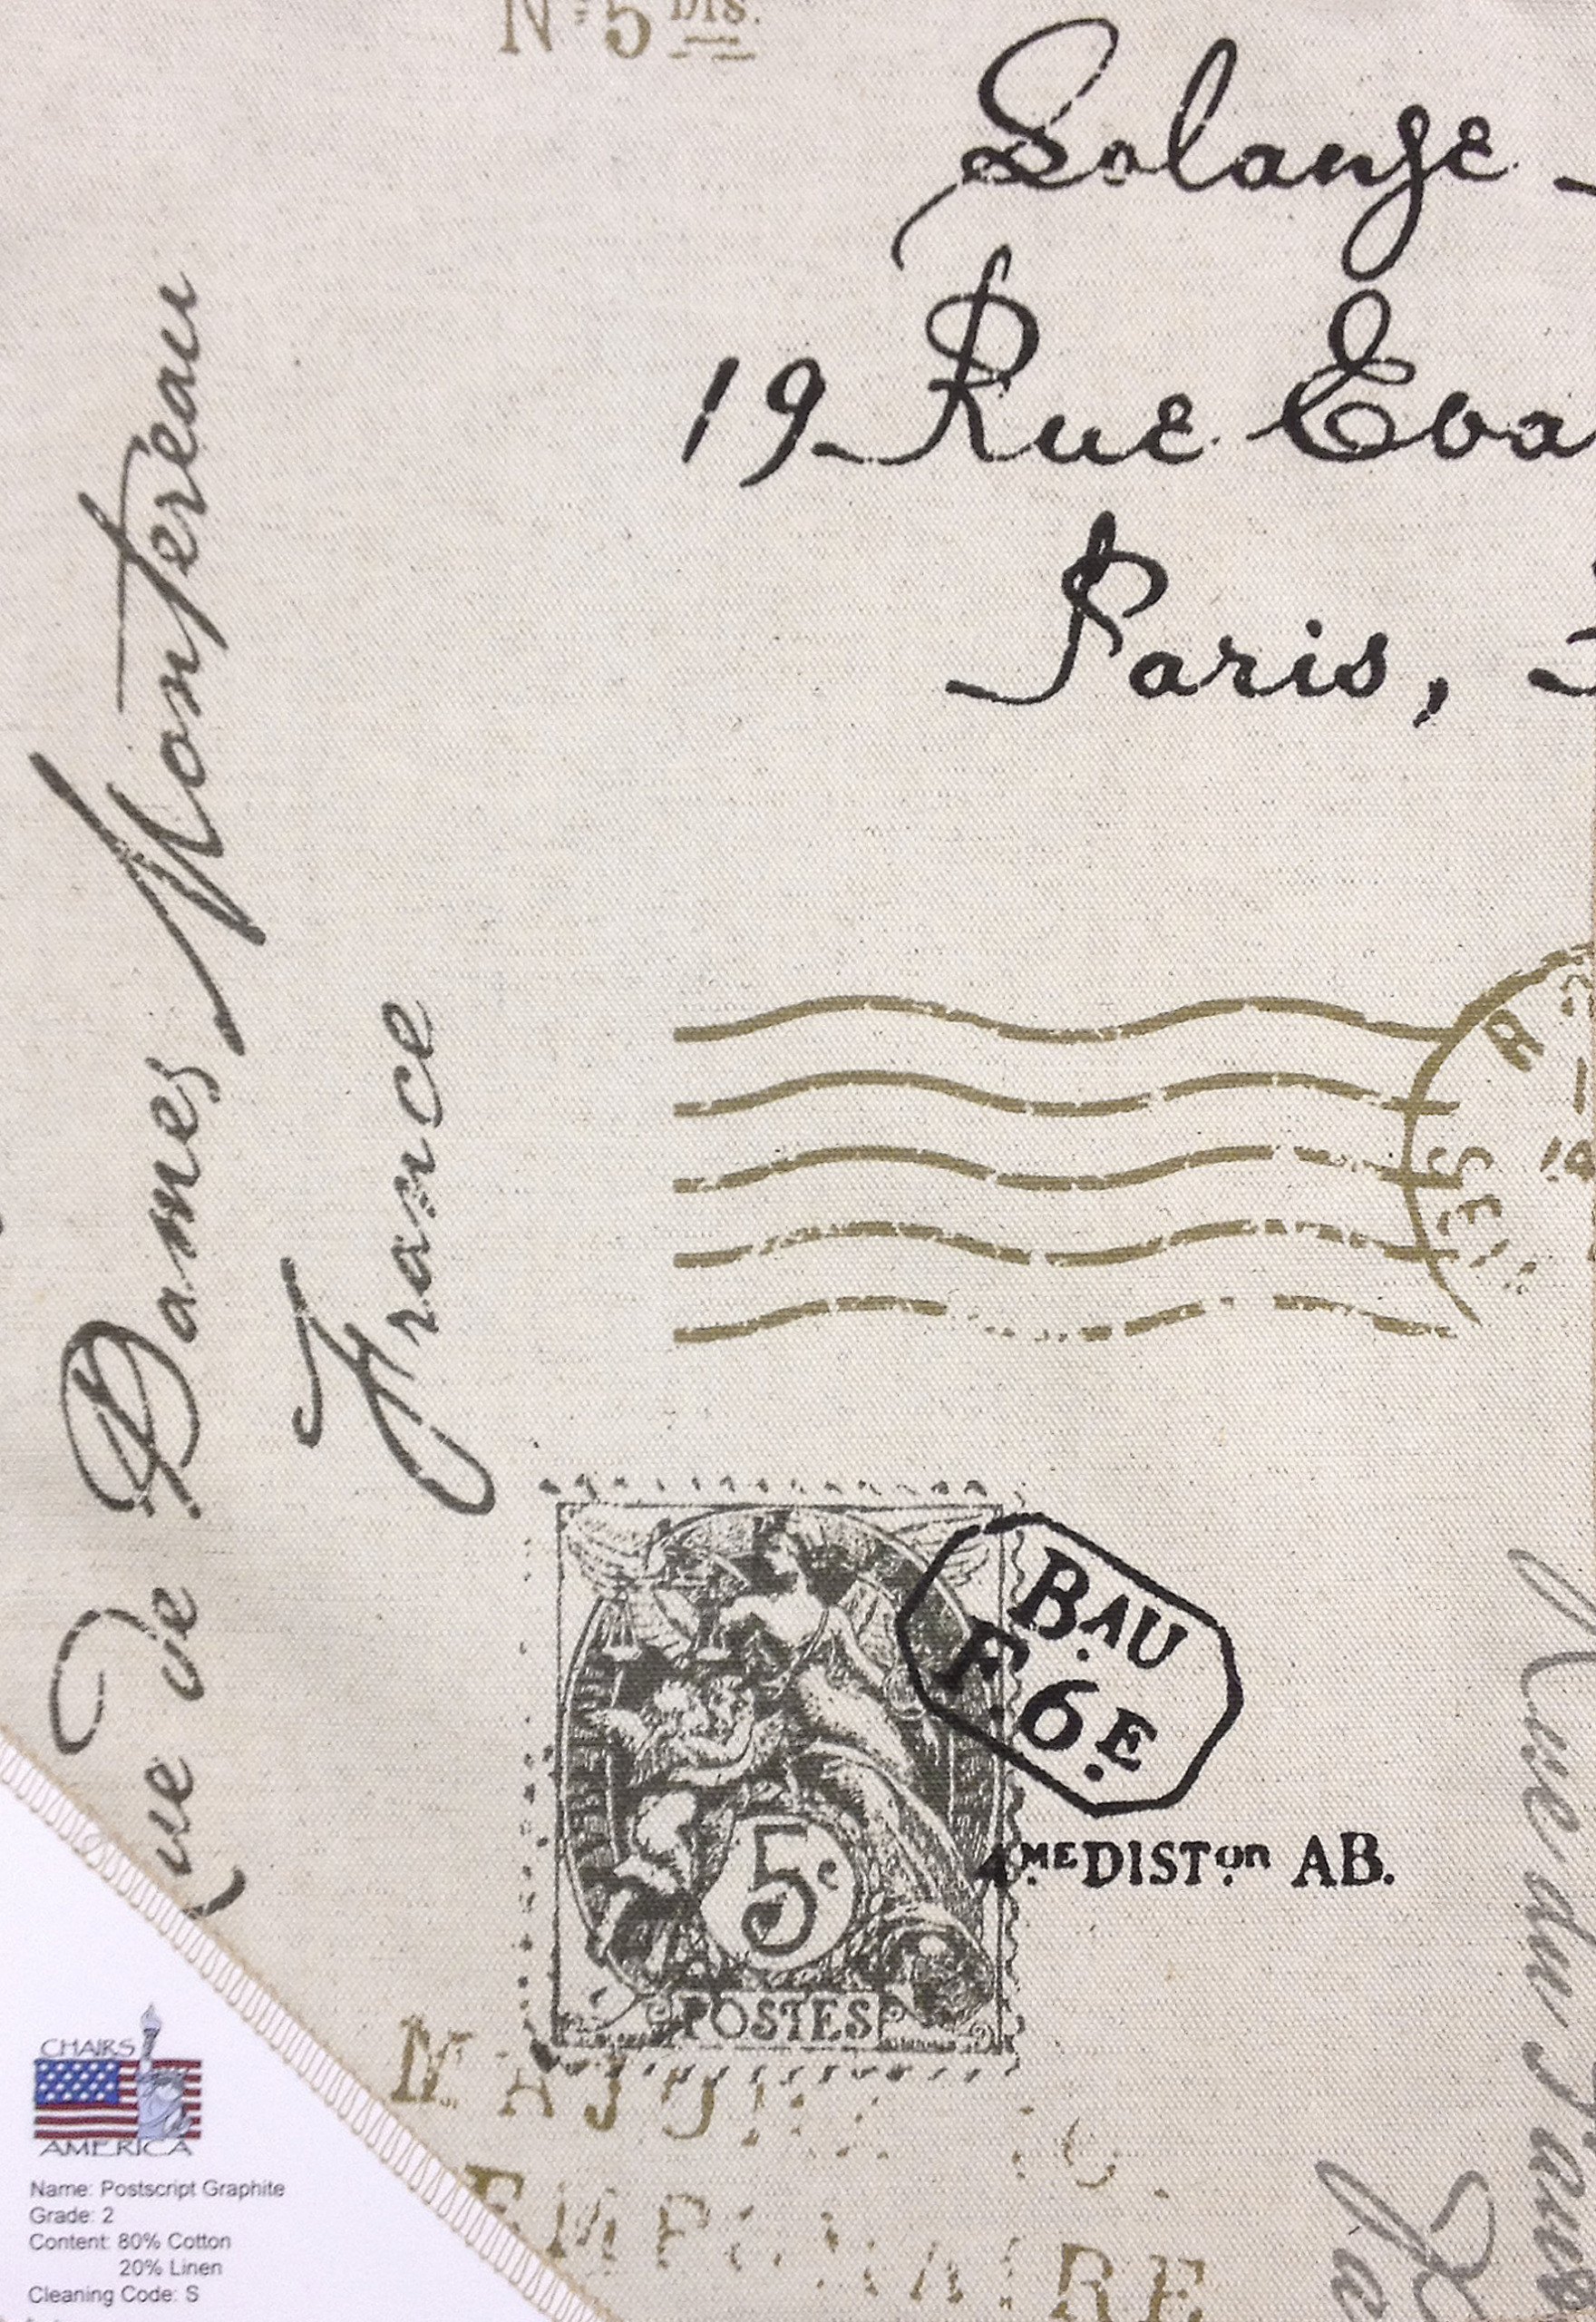 Nº 5 DIS.
Solange
19 Rue Eva
Paris,
Rue de Dames Montereau
France
SEIN
BAU
F. 6 E
5c
POSTES
4.ME DIST.on AB.
Rue du
CHAIRS
AMERICA
Name: Postscript Graphite
Grade: 2
Content: 80% Cotton
20% Linen
Cleaning Code: S